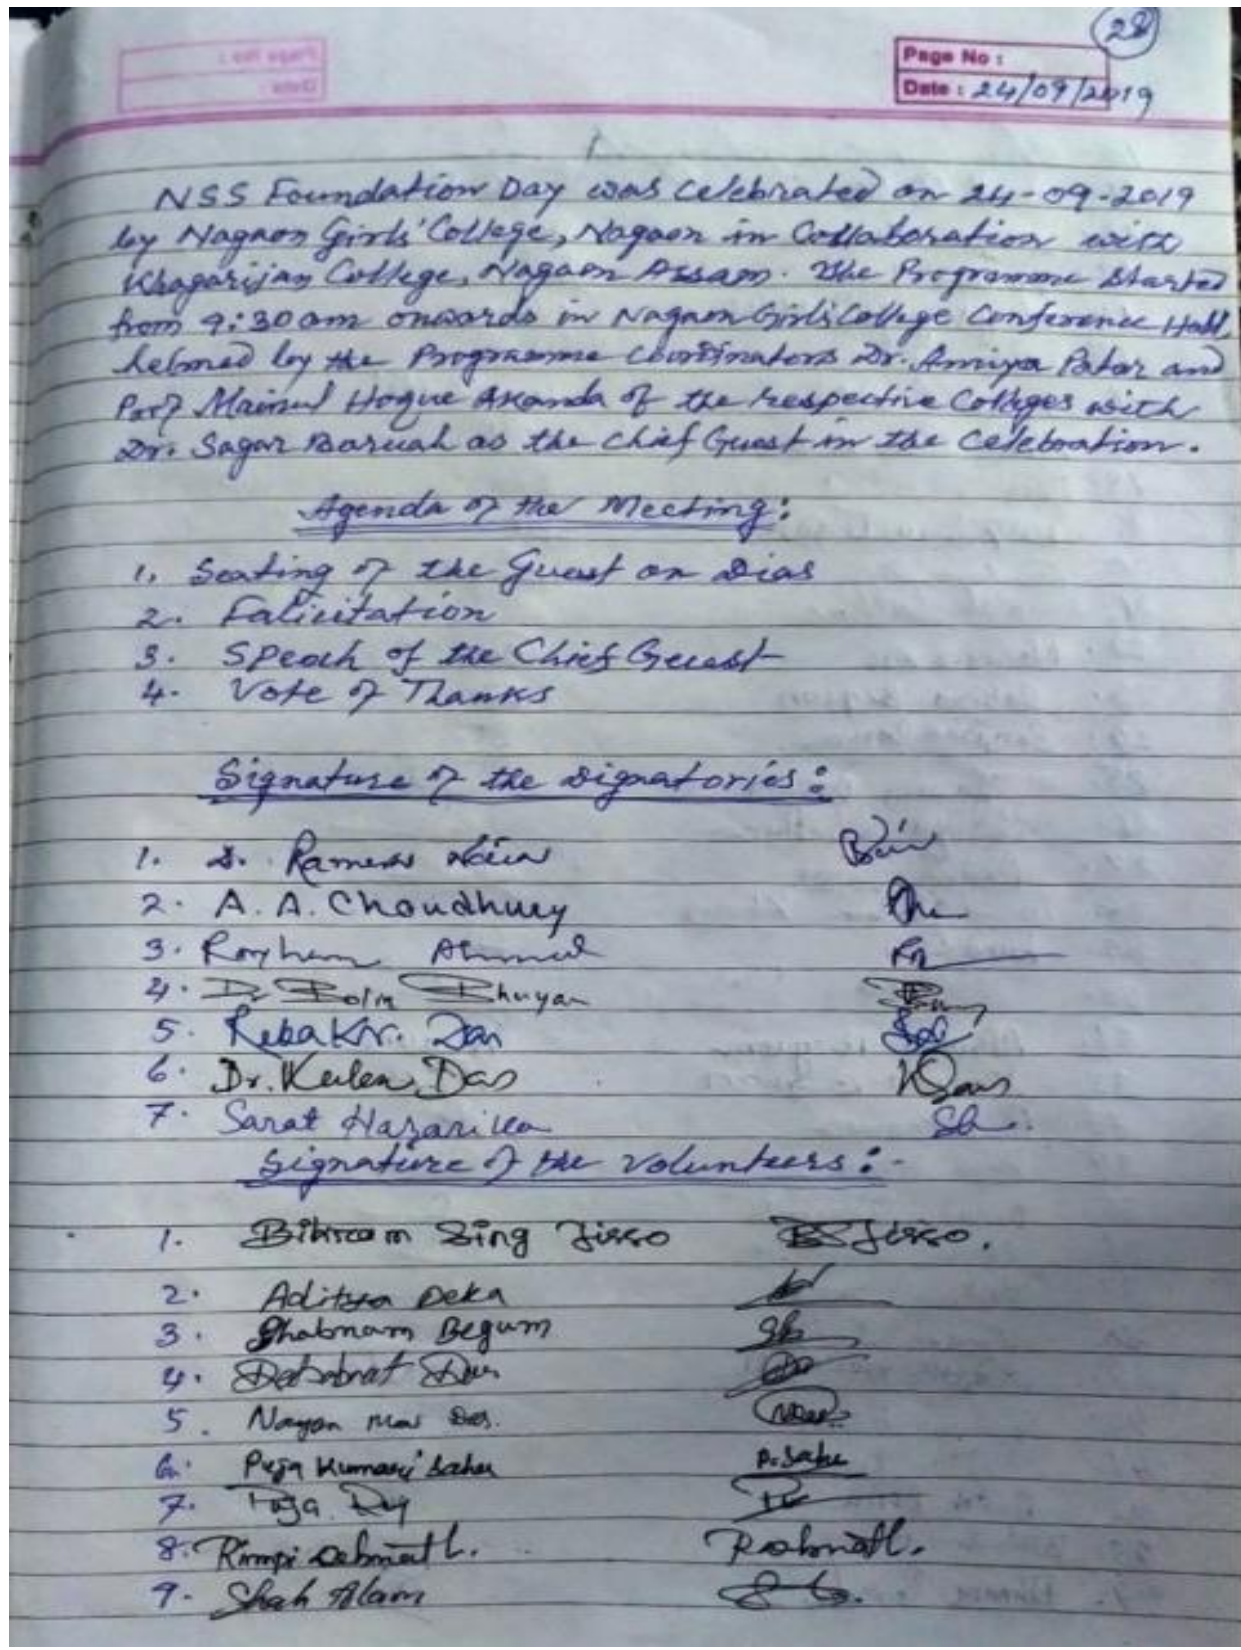 28
Page No :
Date : 24/09/2019
NSS Foundation Day was celebrated on 24-09-2019
by Nagaon Girls' College, Nagaon in Collaboration with
Khagarijan College, Nagaon Assam. The Programme started
from 9:30 am onwards in Nagaon Girls College Conference Hall
helmed by the Programme Coordinators Dr. Amiya Pator and
Prof Mainul Hoque Akanda of the respective Colleges with
Dr. Sagar Baruah as the Chief Guest in the Celebration.
Agenda of the Meeting:
1. Seating of the Guest on Dias
2. Falicitation
3. Speach of the Chief Guest
4. Vote of Thanks
Signature of the Signatories:
1. Ramesh
2. A. A. Choudhury
3. Ahmed
4. Dr Bolin Bhuyan
5. Reba Kr. Das
6. Dr. Das
7. Sarat Hazarika
Signature of the Volunteers:-
1. Bikram Sing Tisso BSTisso.
2. Aditya Deka
3. Shabnam Begum Sb
4. Debabrat Das
5. Nayan Das.
6. Puja Kumari Saha P. Saha
7. Puja Dey
8. Rimpi Debnath. RDebnath.
9. Shah Alam